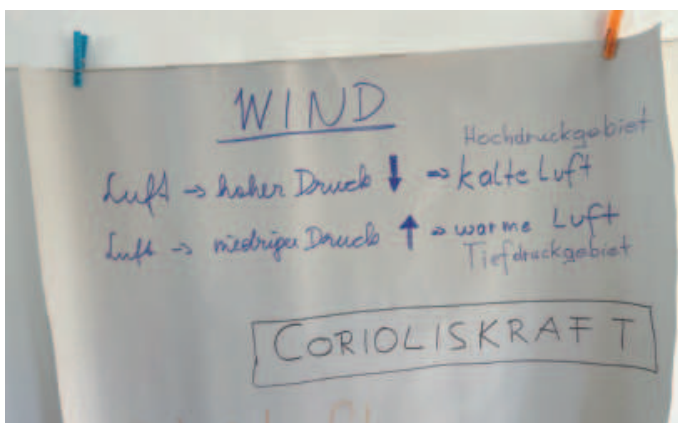 WIND
Hochdruckgebiet
Luft → hoher Druck ↓ ⇒ kalte Luft
Luft → niedriger Druck ↑ ⇒ warme Luft
Tiefdruckgebiet
CORIOLISKRAFT